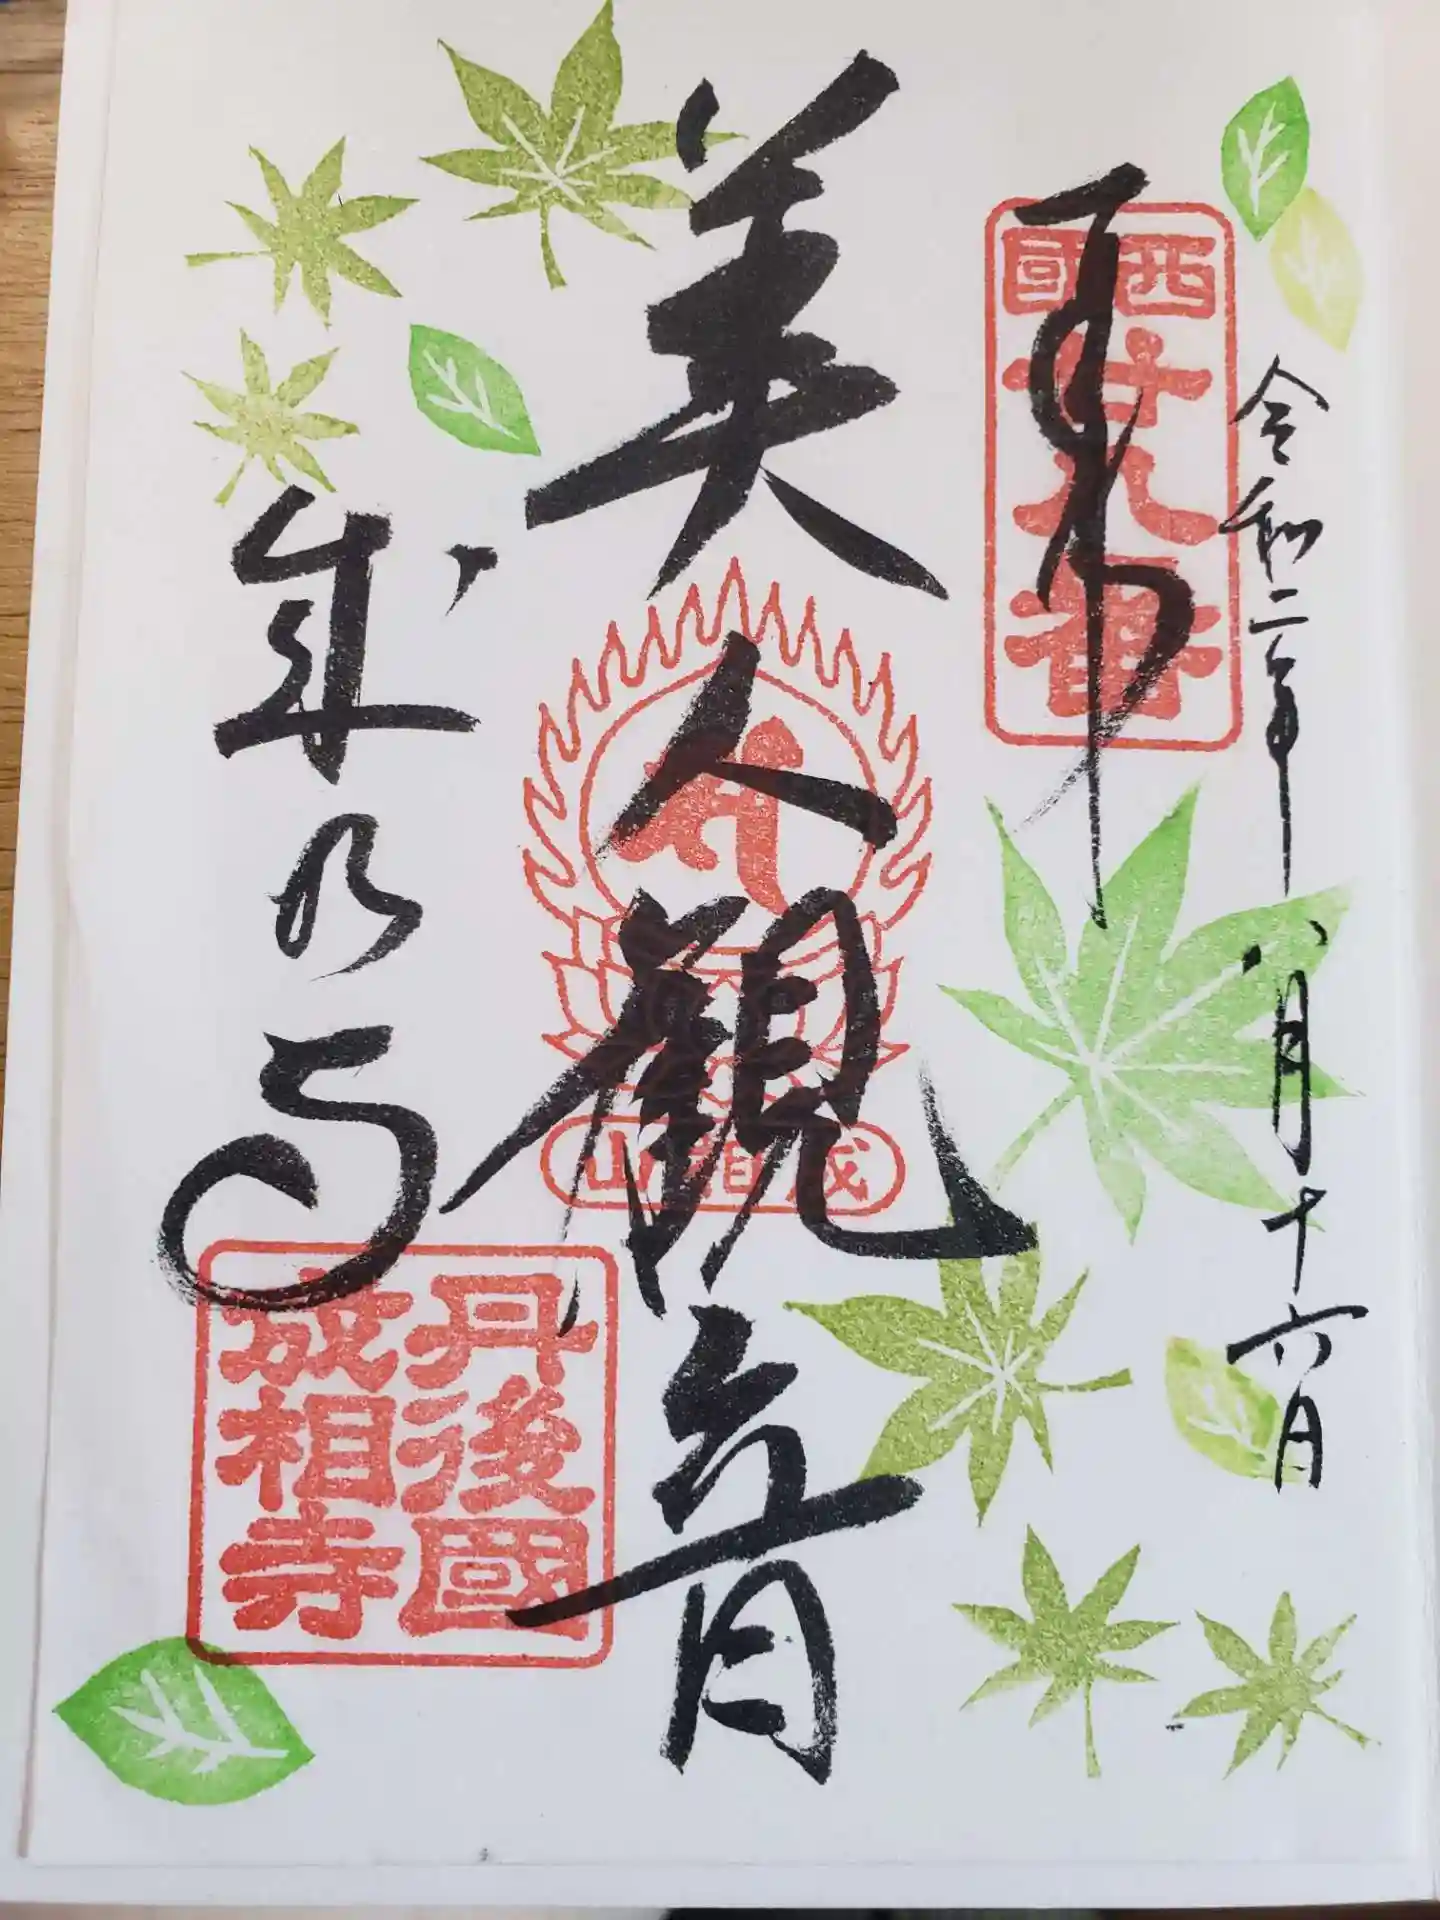 令和二年八月十六日
奉拝
西國
廿八番
美人観音
成相山
成相寺
丹後國
成相寺